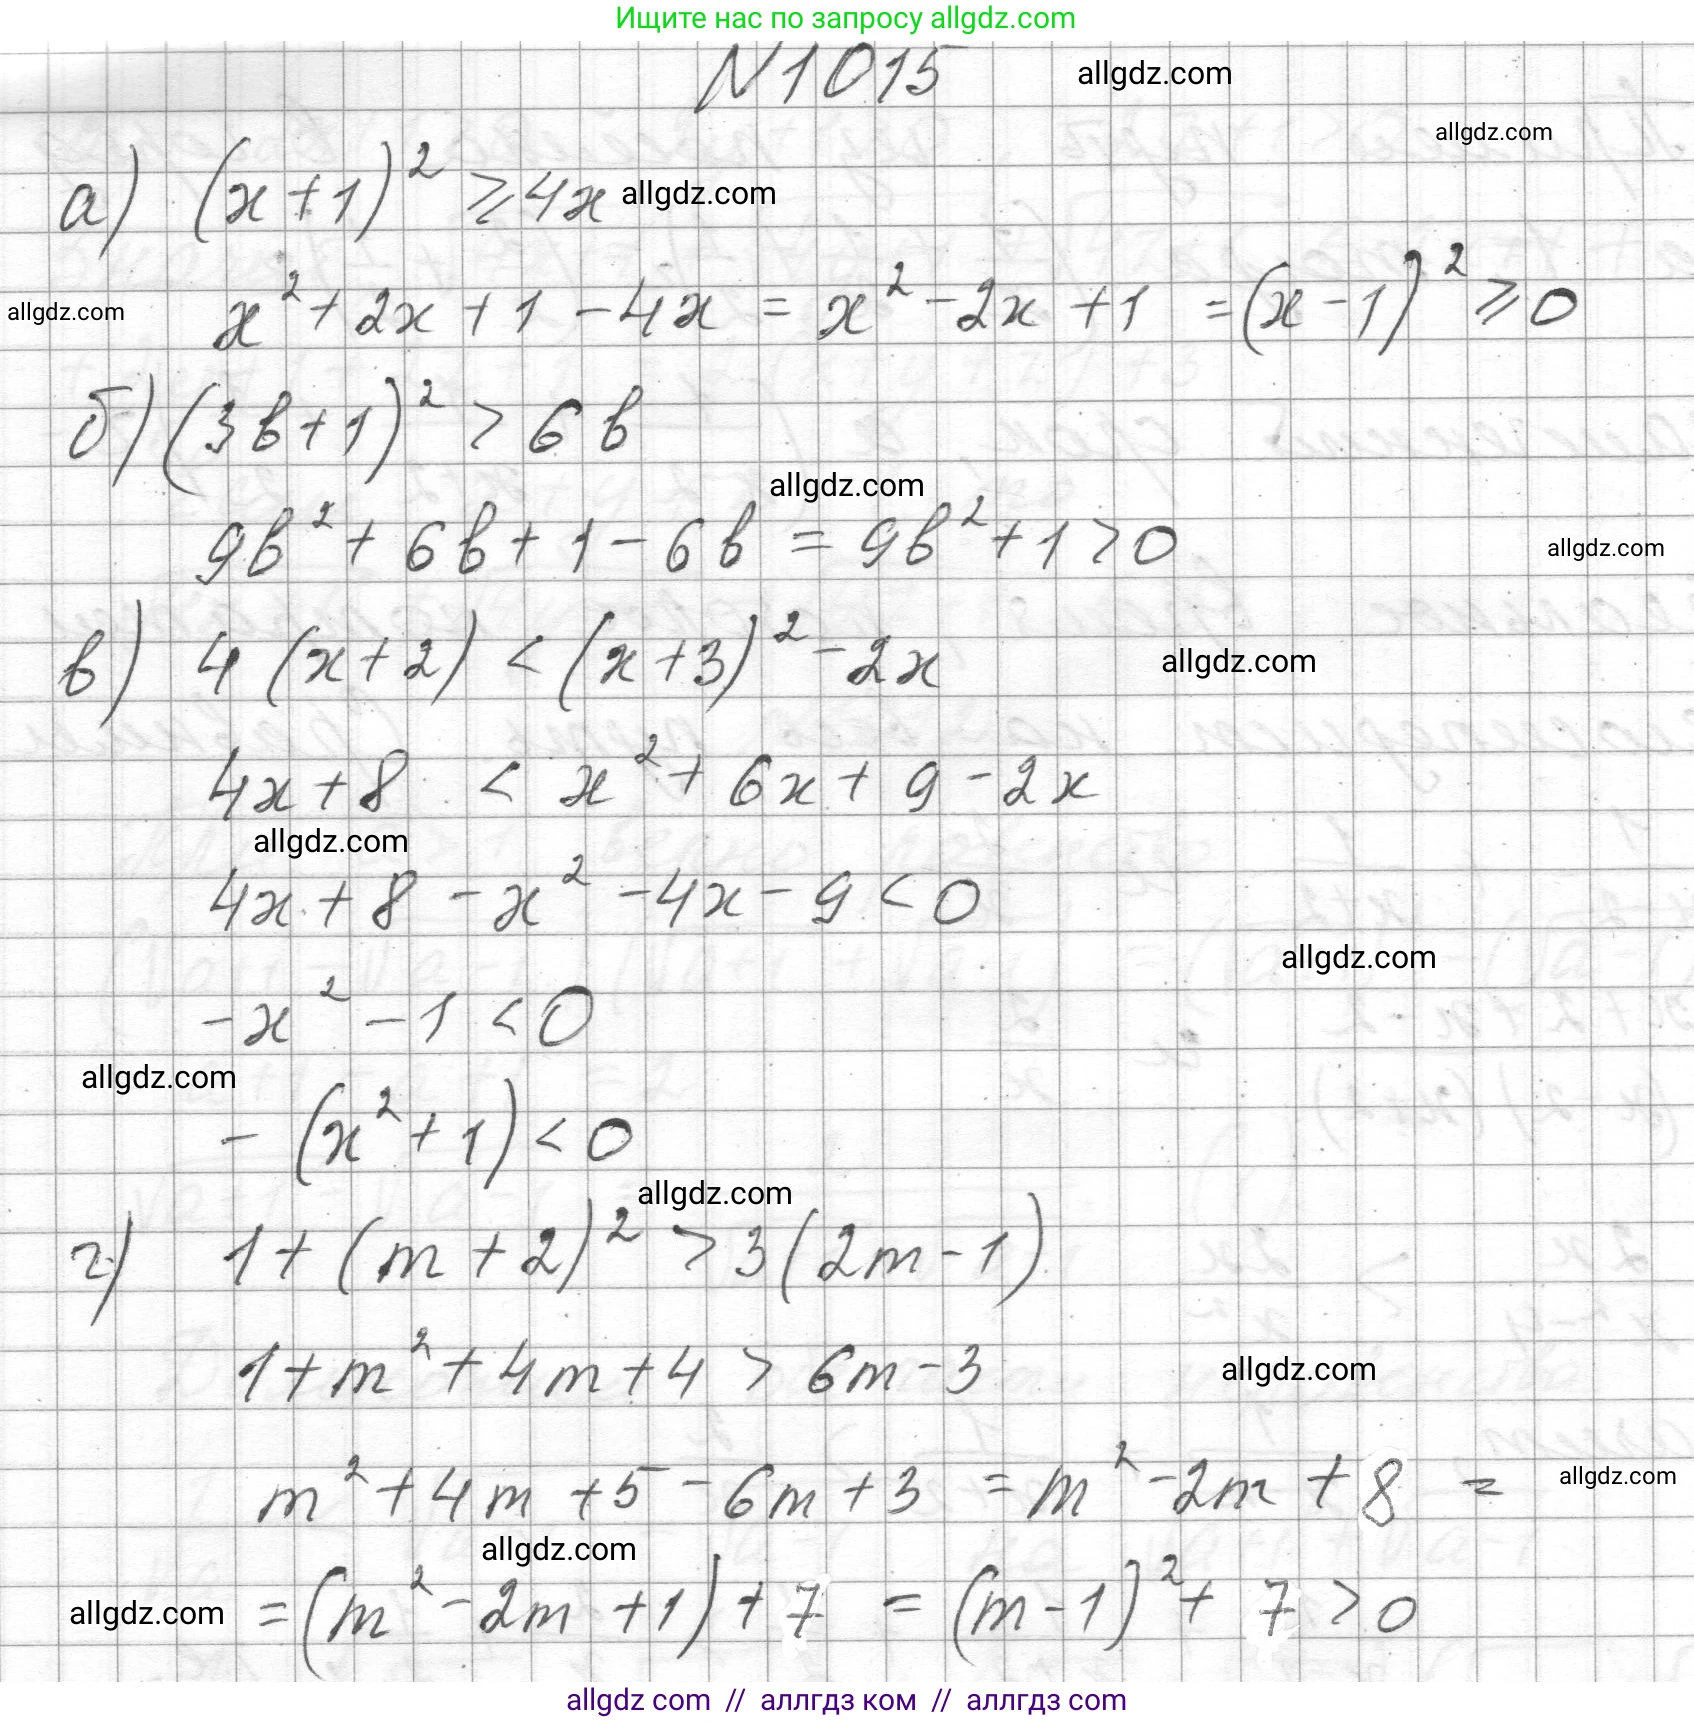 Ищите нас по запросу allgdz.com
N1015 allgdz.com
allgdz.com
а) (x+1)² ⩾ 4x allgdz.com
allgdz.com x² + 2x + 1 - 4x = x² - 2x + 1 = (x-1)² ⩾ 0
б) (3b+1)² > 6b
allgdz.com
9b² + 6b + 1 - 6b = 9b² + 1 > 0 allgdz.com
в) 4(x+2) < (x+3)² - 2x allgdz.com
4x + 8 < x² + 6x + 9 - 2x
allgdz.com
4x + 8 - x² - 4x - 9 < 0
allgdz.com
-x² - 1 < 0
allgdz.com
-(x² + 1) < 0
allgdz.com
г) 1 + (m+2)² > 3(2m-1)
1 + m² + 4m + 4 > 6m - 3 allgdz.com
m² + 4m + 5 - 6m + 3 = m² - 2m + 8 = allgdz.com
allgdz.com
allgdz.com = (m² - 2m + 1) + 7 = (m-1)² + 7 > 0
allgdz com // аллгдз ком // аллгдз com